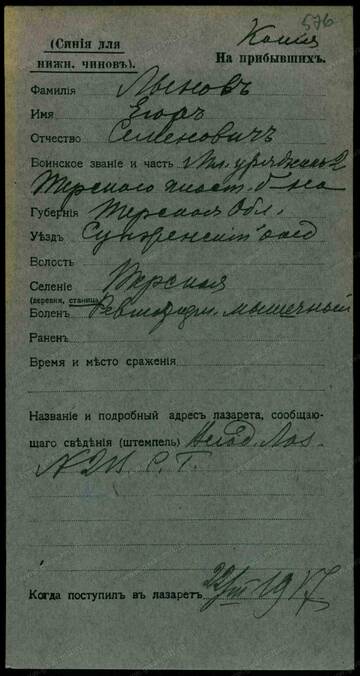 576
Копия
(Синія для
нижн. чиновъ).
На прибывшихъ.
Фамилія Лыновъ
Имя Егоръ
Отчество Семеновичъ
Воинское званіе и часть Мл. урядникъ 2
Терского пласт. б-на
Губернія Терская Обл.
Уѣздъ Сунженскій
Волость
Селеніе Терская
(деревня, станица)
Боленъ мышечный
Раненъ
Время и мѣсто сраженія
Названіе и подробный адресъ лазарета, сообщаю-
щаго свѣдѣнія (штемпель) Лаз.
С. Г.
Когда поступилъ въ лазаретъ 1917